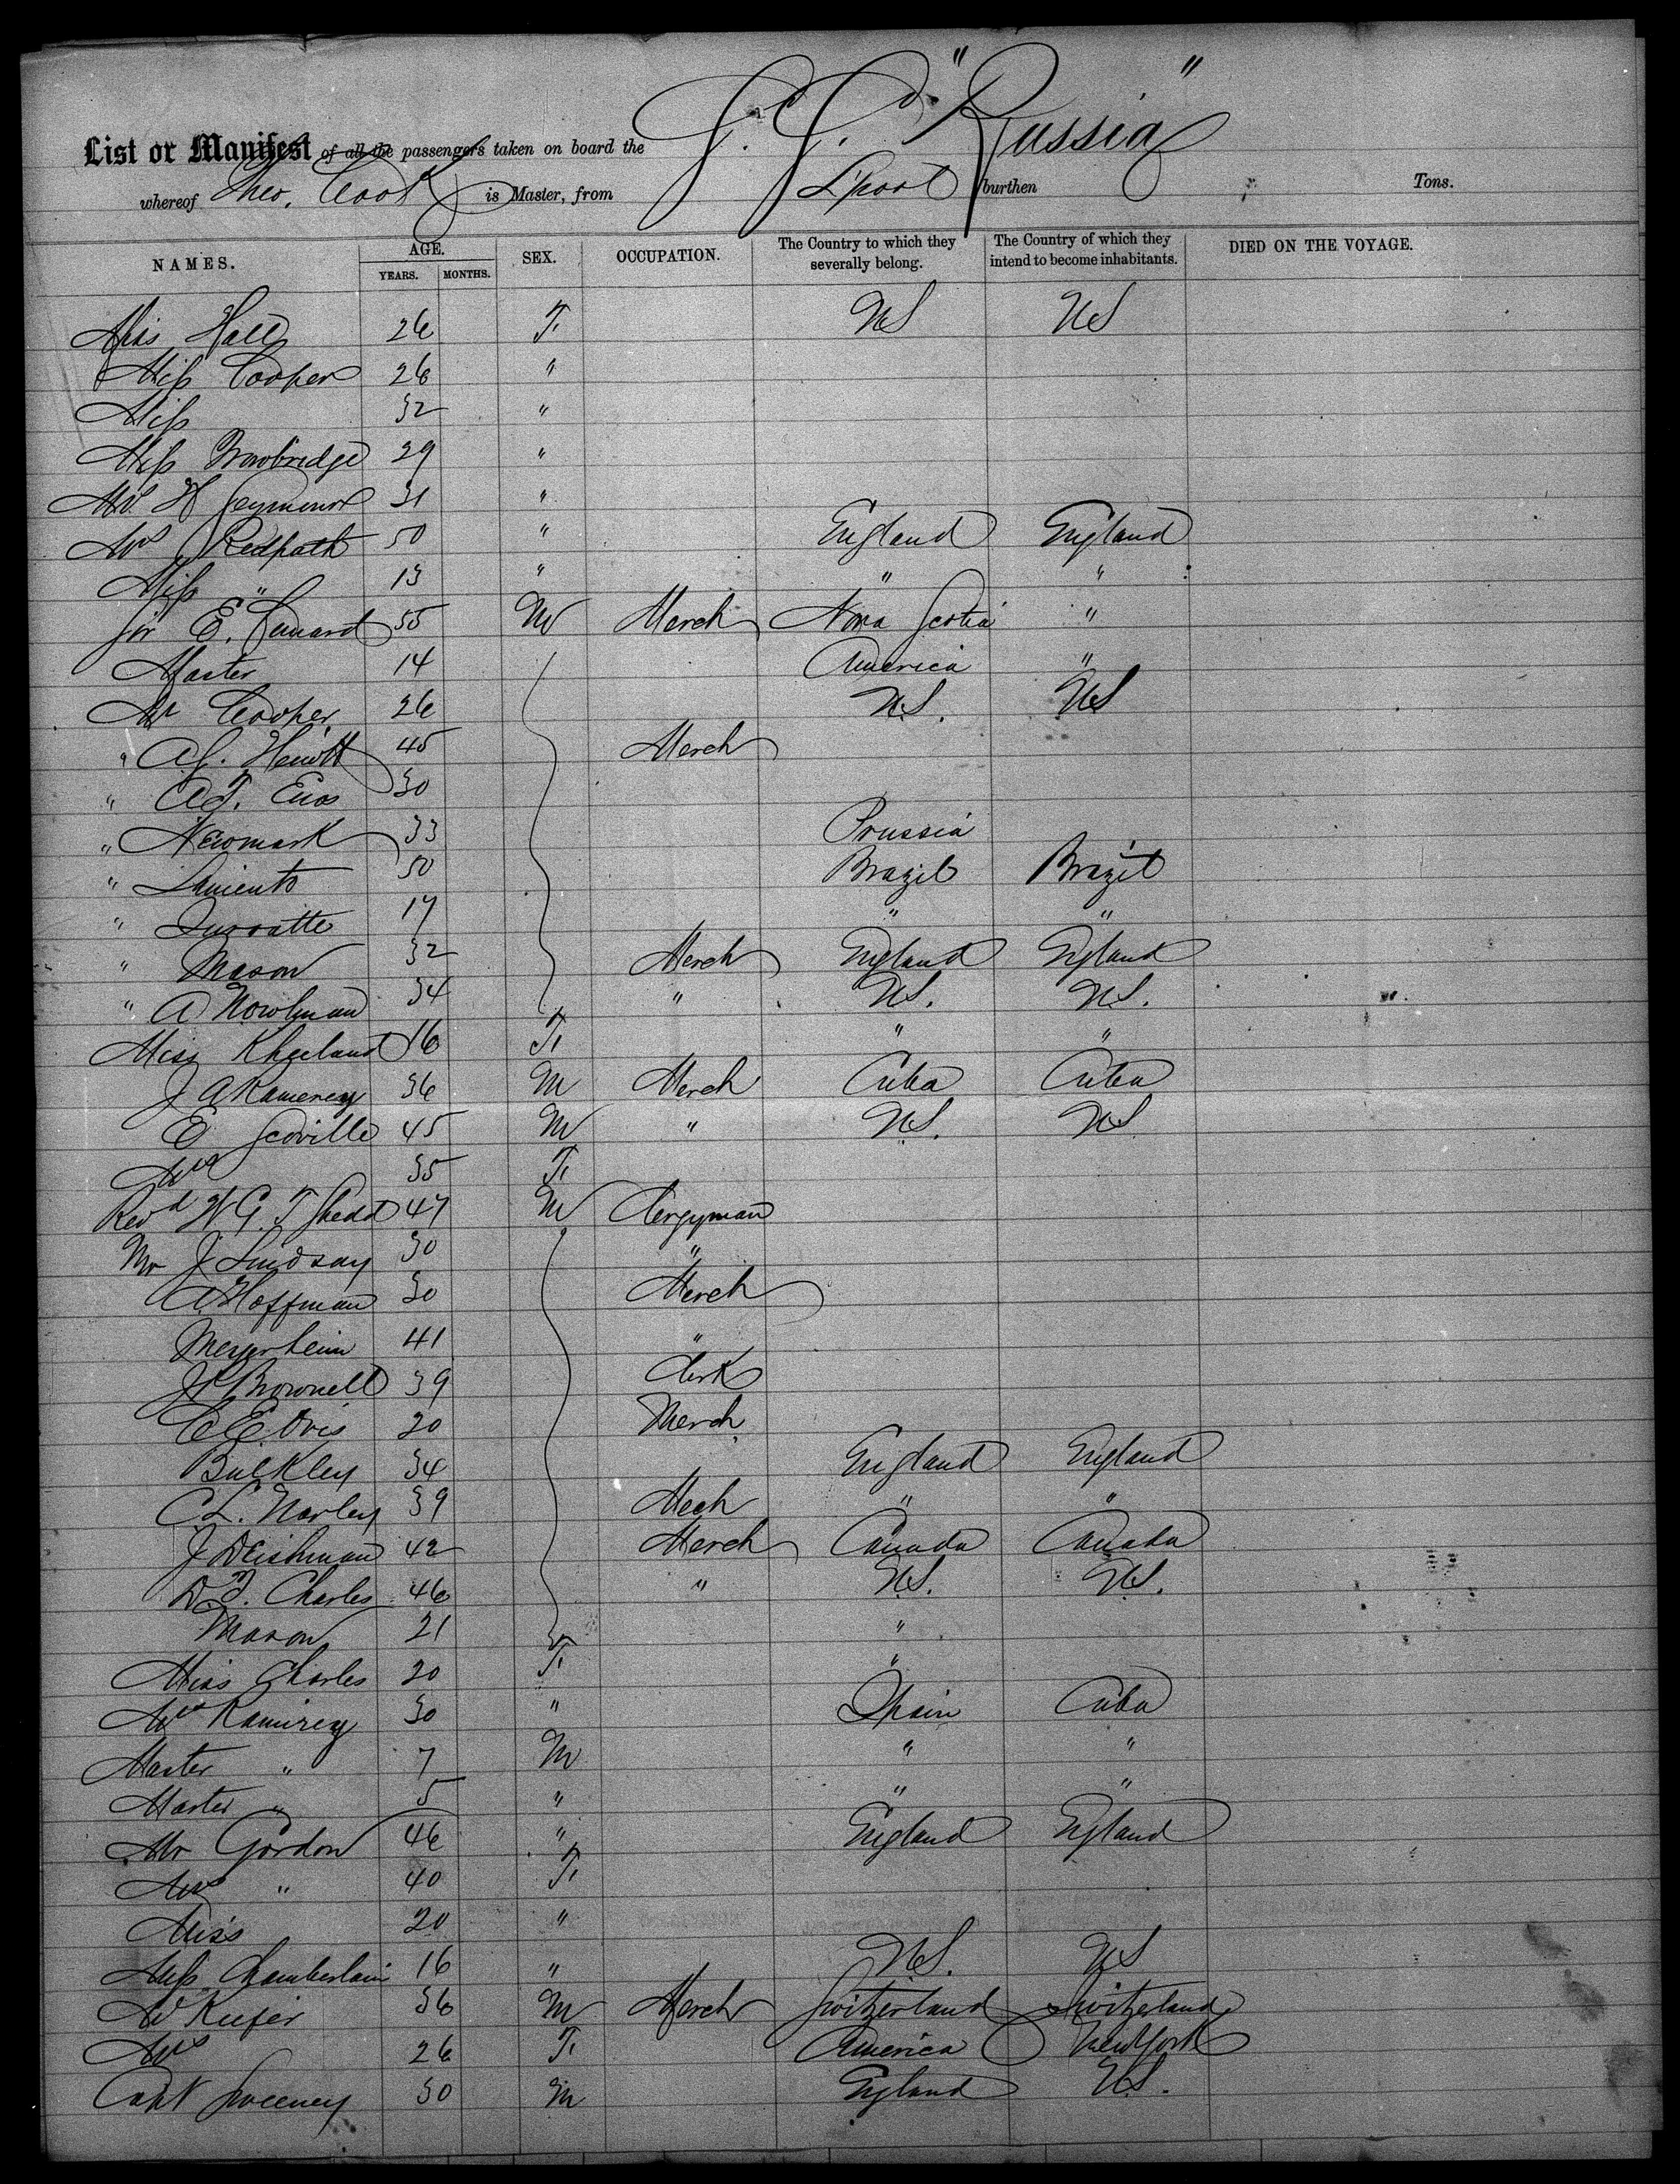 List or Manifest of all the passengers taken on board the S. S. "Russia"
whereof Theo. Cook is Master, from L'pool burthen Tons.
NAMES. AGE. YEARS. MONTHS. SEX. OCCUPATION. The Country to which they severally belong. The Country of which they intend to become inhabitants. DIED ON THE VOYAGE.
Miss Hall 26 F. US US
Miss Cooper 26 "
Miss 32 "
Miss Trowbridge 29 "
Mrs. H Seymour 31 "
Mrs Redpath 50 " England England
Miss " 13 " " "
Sir E. Cunard 55 M Merch Nova Scotia "
Master 14 America "
Mr Cooper 26 U.S. US
" A S. Hewitt 45 Merch
" A T. Enos 30
" Newmark 33 Prussia
" 50 Brazil Brazil
" 17 " "
" Mason 32 Merch England England
" A 34 " U.S. U.S.
Miss Kneeland 16 F. " "
J A Ramerey 36 M Merch Cuba Cuba
E Scoville 45 M " U.S. US
Mrs 35 F.
Revd W G. T Shedd 47 M Clergyman
Mr J Lindsay 30 "
A Hoffman 30 Merch
Meyerheim 41 "
Brownell 39 Clerk
C E Ovis 20 Merch
Bulkley 34 England England
C. L. Norley 39 Mech " "
J Dishman 42 Merch Canada Canada
D F. Charles 46 " U.S. U.S.
Mason 21 "
Miss Charles 20 F. "
Mrs Ramirey 30 " Spain Cuba
Master " 7 M " "
Master " 5 " " "
Mr Gordon 46 " England England
Mrs " 40 F.
Miss 20 "
Miss Chamberlain 16 " U.S. US
Mr Kiefer 36 M Merch Switzerland Switzerland
Mrs 26 F. America New York
Capt Sweeney 30 M England U.S.